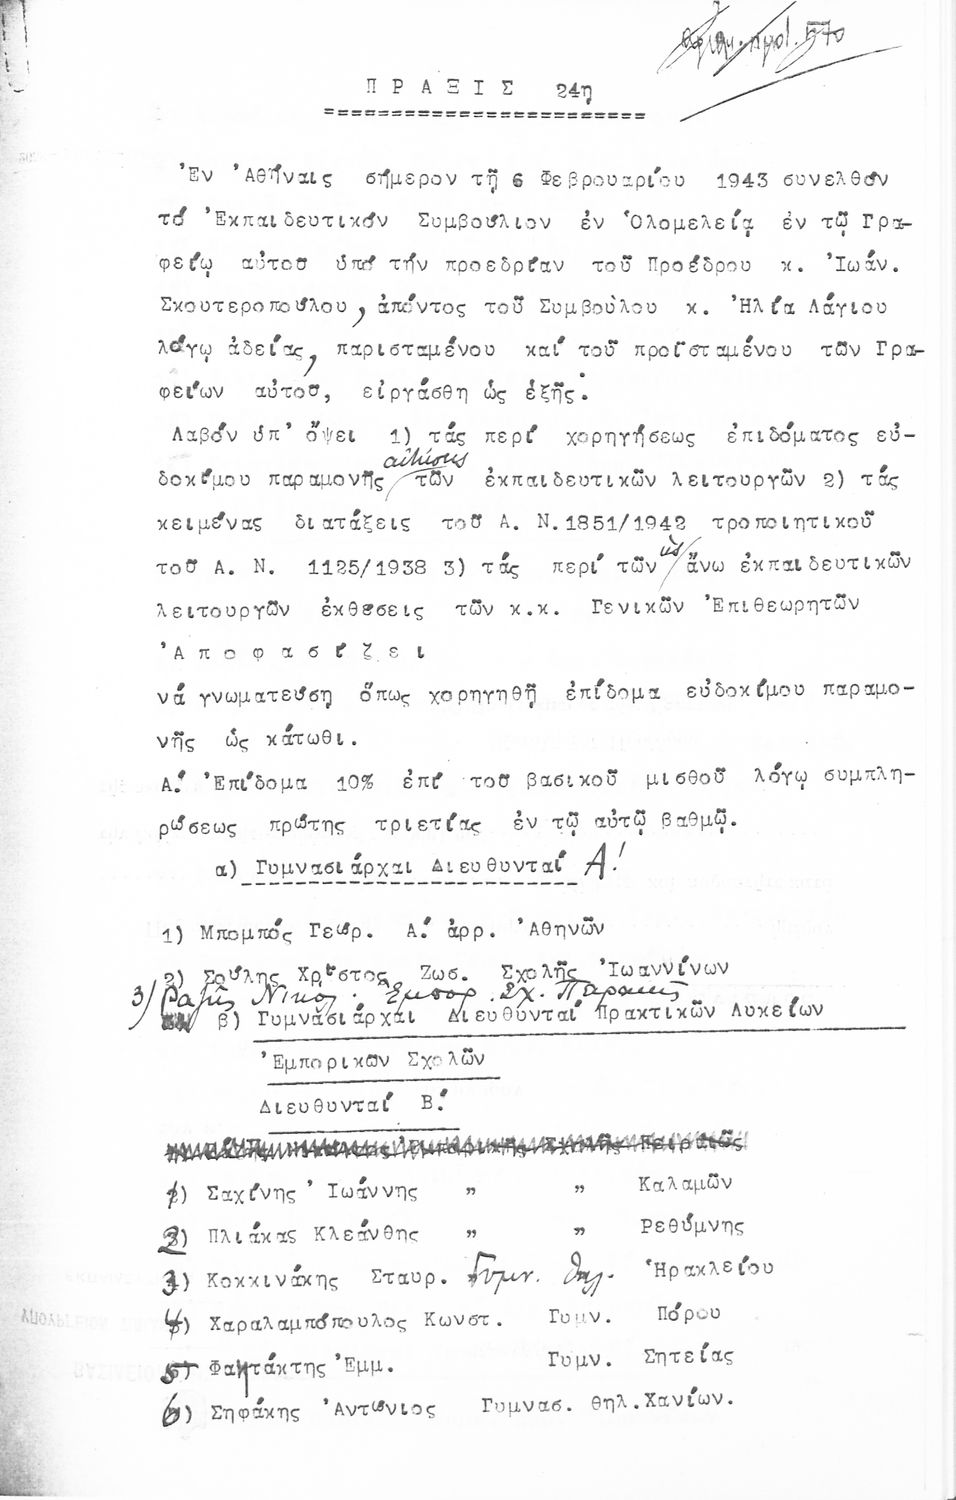 αριθ. πρωτ. 570
ΠΡΑΞΙΣ 24η
Ἐν Ἀθήναις σήμερον τῇ 6 Φεβρουαρίου 1943 συνελθόν
τό Ἐκπαιδευτικόν Συμβούλιον ἐν Ὁλομελείᾳ ἐν τῷ Γρα-
φείῳ αὐτοῦ ὑπό τήν προεδρίαν τοῦ Προέδρου κ. Ἰωάν.
Σκουτεροπούλου, ἀπόντος τοῦ Συμβούλου κ. Ἠλία Λάγιου
λόγῳ ἀδείας, παρισταμένου καί τοῦ προϊσταμένου τῶν Γρα-
φείων αὐτοῦ, εἰργάσθη ὡς ἑξῆς:
Λαβόν ὑπ' ὄψει 1) τάς περί χορηγήσεως ἐπιδόματος εὐ-
δοκίμου παραμονῆς αἰτήσεις τῶν ἐκπαιδευτικῶν λειτουργῶν 2) τάς
κειμένας διατάξεις τοῦ Α. Ν. 1851/1942 τροποιητικοῦ
τοῦ Α. Ν. 1125/1938 3) τάς περί τῶν ὡς ἄνω ἐκπαιδευτικῶν
λειτουργῶν ἐκθέσεις τῶν κ.κ. Γενικῶν Ἐπιθεωρητῶν
Ἀποφασίζει
νά γνωματεύσῃ ὅπως χορηγηθῇ ἐπίδομα εὐδοκίμου παραμο-
νῆς ὡς κάτωθι.
Α! Ἐπίδομα 10% ἐπί τοῦ βασικοῦ μισθοῦ λόγῳ συμπλη-
ρώσεως πρώτης τριετίας ἐν τῷ αὐτῷ βαθμῷ.
α) Γυμνασιάρχαι Διευθυνταί Α!
1) Μπομπός Γεωρ. Α! ἀρρ. Ἀθηνῶν
2) Σούλης Χρῖστος Ζωσ. Σχολῆς Ἰωαννίνων
3) Ραζῆς Νικόλ. Ἐμπορ. Σχ. Πειραιῶς
β) Γυμνασιάρχαι Διευθυνταί Πρακτικῶν Λυκείων
Ἐμπορικῶν Σχολῶν
Διευθυνταί Β!
Ἐμπορικῆς Σχολῆς Πειραιῶς
1) Σαχίνης Ἰωάννης " " Καλαμῶν
2) Πλιάκας Κλεάνθης " " Ρεθύμνης
3) Κοκκινάκης Σταυρ. Γυμν. Θηλ. Ἡρακλείου
4) Χαραλαμπόπουλος Κωνστ. Γυμν. Πόρου
5) Φαητάκτης Ἐμμ. Γυμν. Σητείας
6) Σηφάκης Ἀντώνιος Γυμνασ. θηλ. Χανίων.